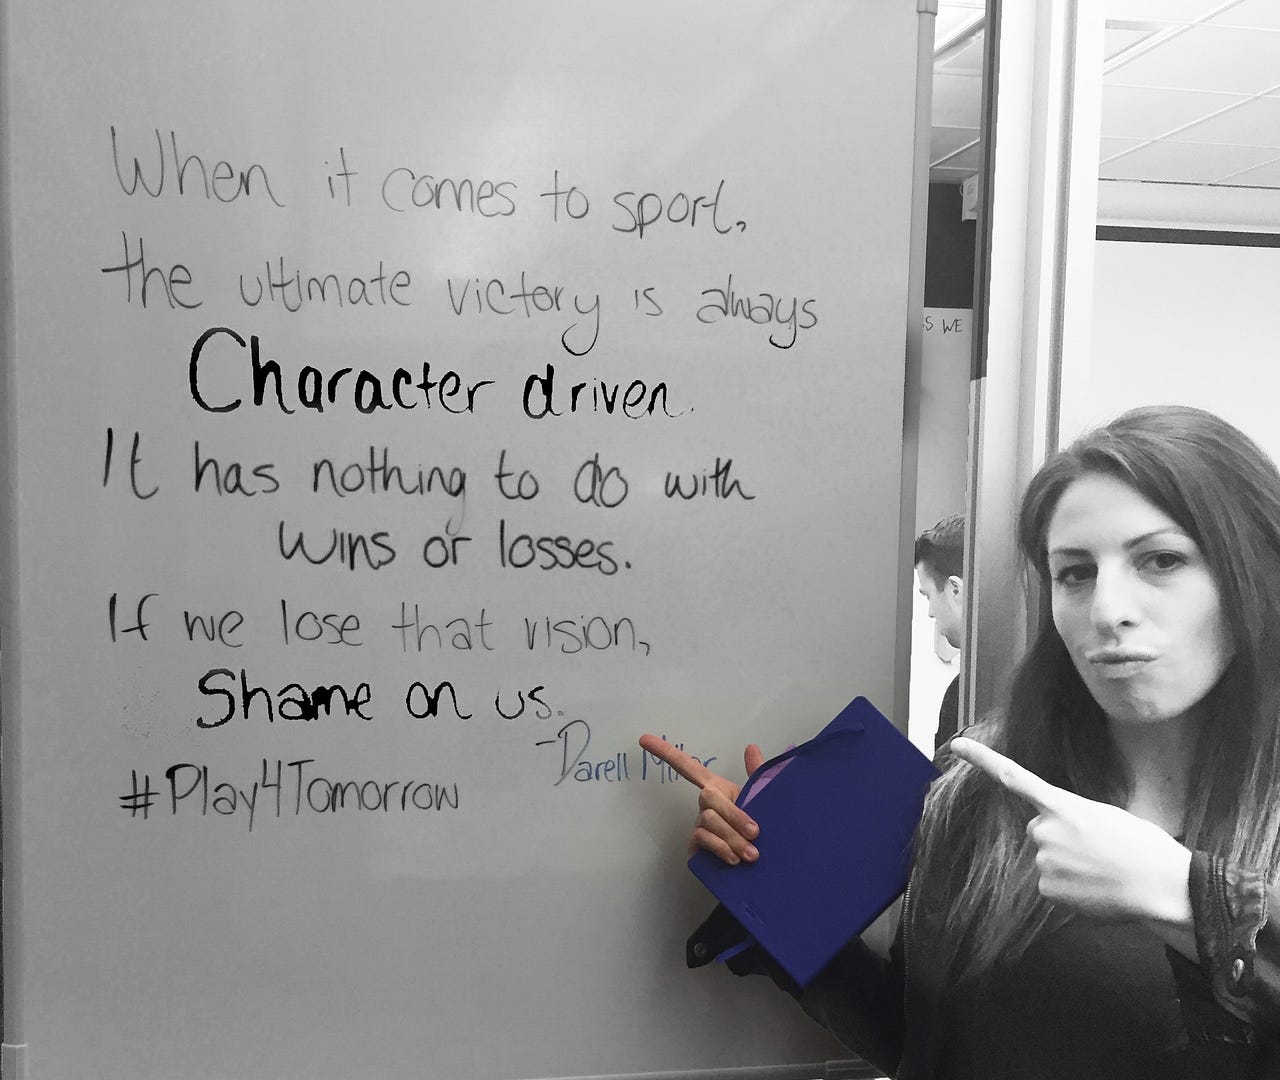 When it comes to sport,
the ultimate victory is always
Character driven.
It has nothing to do with
wins or losses.
If we lose that vision,
Shame on us.
-Darell Miller
#Play4Tomorrow
S WE